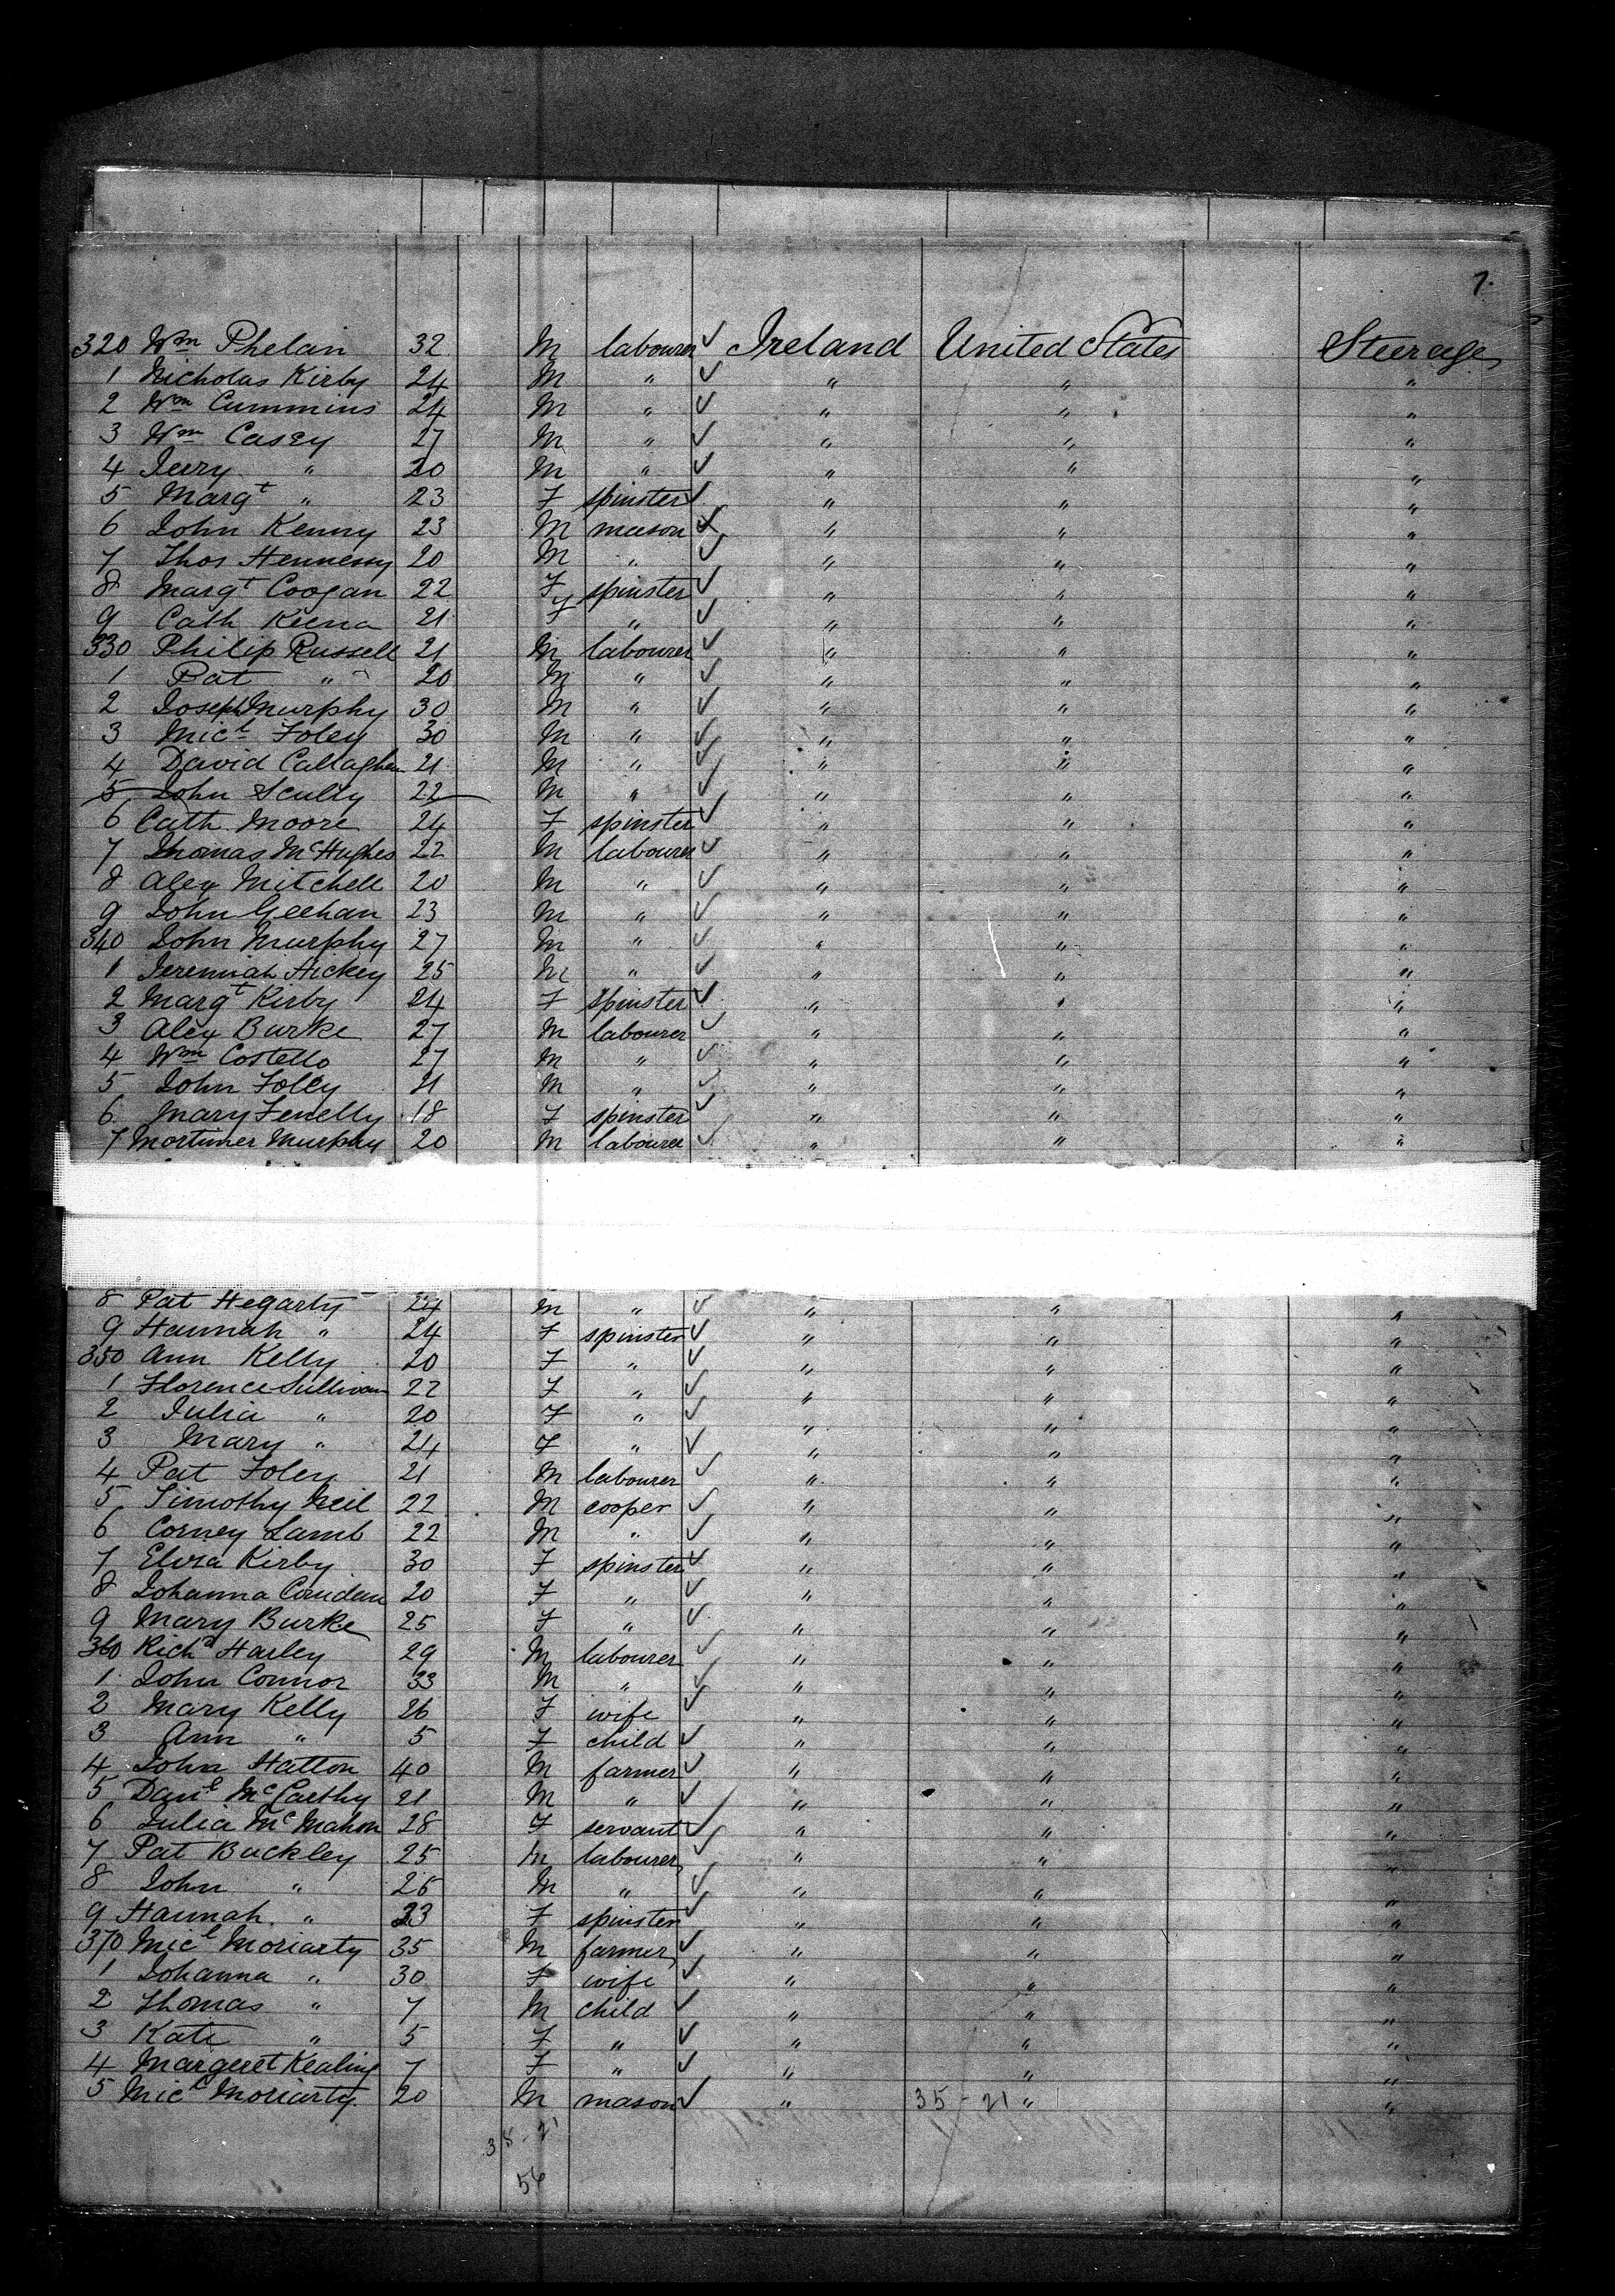 7.
320 Wm Phelan 32 M labourer ✓ Ireland United States Steerage
1 Nicholas Kirby 24 M " ✓ " " "
2 Wm Cummins 24 M " ✓ " " "
3 Wm Casey 27 M " ✓ " " "
4 Jerry " 20 M " ✓ " " "
5 Margt " 23 F spinster ✓ " " "
6 John Kenny 23 M mason ✓ " " "
7 Thos Hennessy 20 M " ✓ " " "
8 Margt Coogan 22 F spinster ✓ " " "
9 Cath 21 F " ✓ " " "
330 Philip Russell 21 M labourer ✓ " " "
1 Pat " 20 M " ✓ " " "
2 Joseph Murphy 30 M " ✓ " " "
3 Micl Foley 30 M " ✓ " " "
4 David Callaghan 21 M " ✓ " " "
5 John Scully 22 M " ✓ " " "
6 Cath Moore 24 F spinster ✓ " " "
7 Thomas McHughes 22 M labourer ✓ " " "
8 Alex Mitchell 20 M " ✓ " " "
9 John Geehan 23 M " ✓ " " "
340 John Murphy 27 M " ✓ " " "
1 Jeremiah Hickey 25 M " ✓ " " "
2 Margt Kirby 24 F spinster ✓ " " "
3 Alex Burke 27 M labourer ✓ " " "
4 Wm Costello 27 M " ✓ " " "
5 John Foley 21 M " ✓ " " "
6 Mary Fenelly 18 F spinster ✓ " " "
7 Mortimer Murphy 20 M labourer ✓ " " "
8 Pat Hegarty 24 M " ✓ " " "
9 Hannah " 24 F spinster ✓ " " "
350 Ann Kelly 20 F " ✓ " " "
1 Florence Sullivan 22 F " ✓ " " "
2 Julia " 20 F " ✓ " " "
3 Mary " 24 F " ✓ " " "
4 Pat Foley 21 M labourer ✓ " " "
5 Timothy Neil 22 M cooper ✓ " " "
6 Corney Lamb 22 M " ✓ " " "
7 Eliza Kirby 30 F spinster ✓ " " "
8 Johanna 20 F " ✓ " " "
9 Mary Burke 25 F " ✓ " " "
360 Richd Harley 29 M labourer ✓ " " "
1 John Connor 33 M " ✓ " " "
2 Mary Kelly 26 F wife ✓ " " "
3 Ann " 5 F child ✓ " " "
4 John Hatton 40 M farmer ✓ " " "
5 Danl McCarthy 21 M " ✓ " " "
6 Julia McMahon 28 F servant ✓ " " "
7 Pat Buckley 25 M labourer ✓ " " "
8 John " 26 M " ✓ " " "
9 Hannah " 23 F spinster ✓ " " "
370 Micl Moriarty 35 M farmer ✓ " " "
1 Johanna " 30 F wife ✓ " " "
2 Thomas " 7 M child ✓ " " "
3 Kate " 5 F " ✓ " " "
4 Margeret Kealing 7 F " ✓ " " "
5 Micl Moriarty 20 M mason ✓ " 35-21 " "
38-21
56